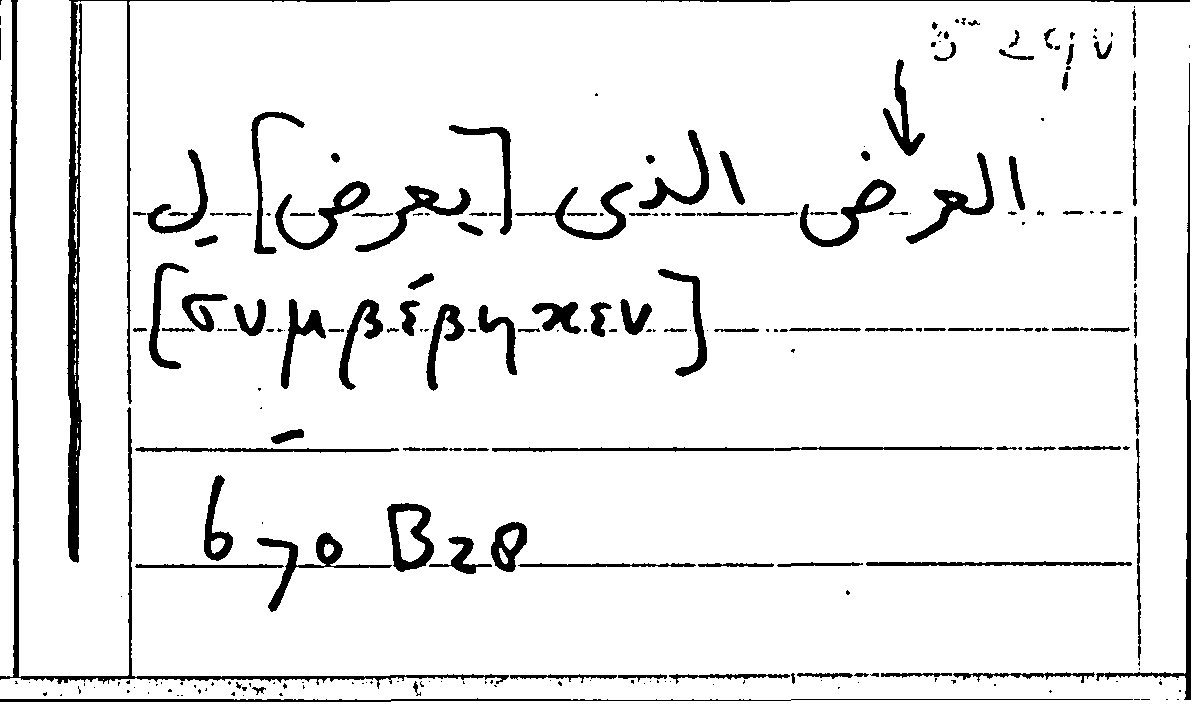 العرض الذى [يعرض] ل
[συμβέβηκεν]
670 B28